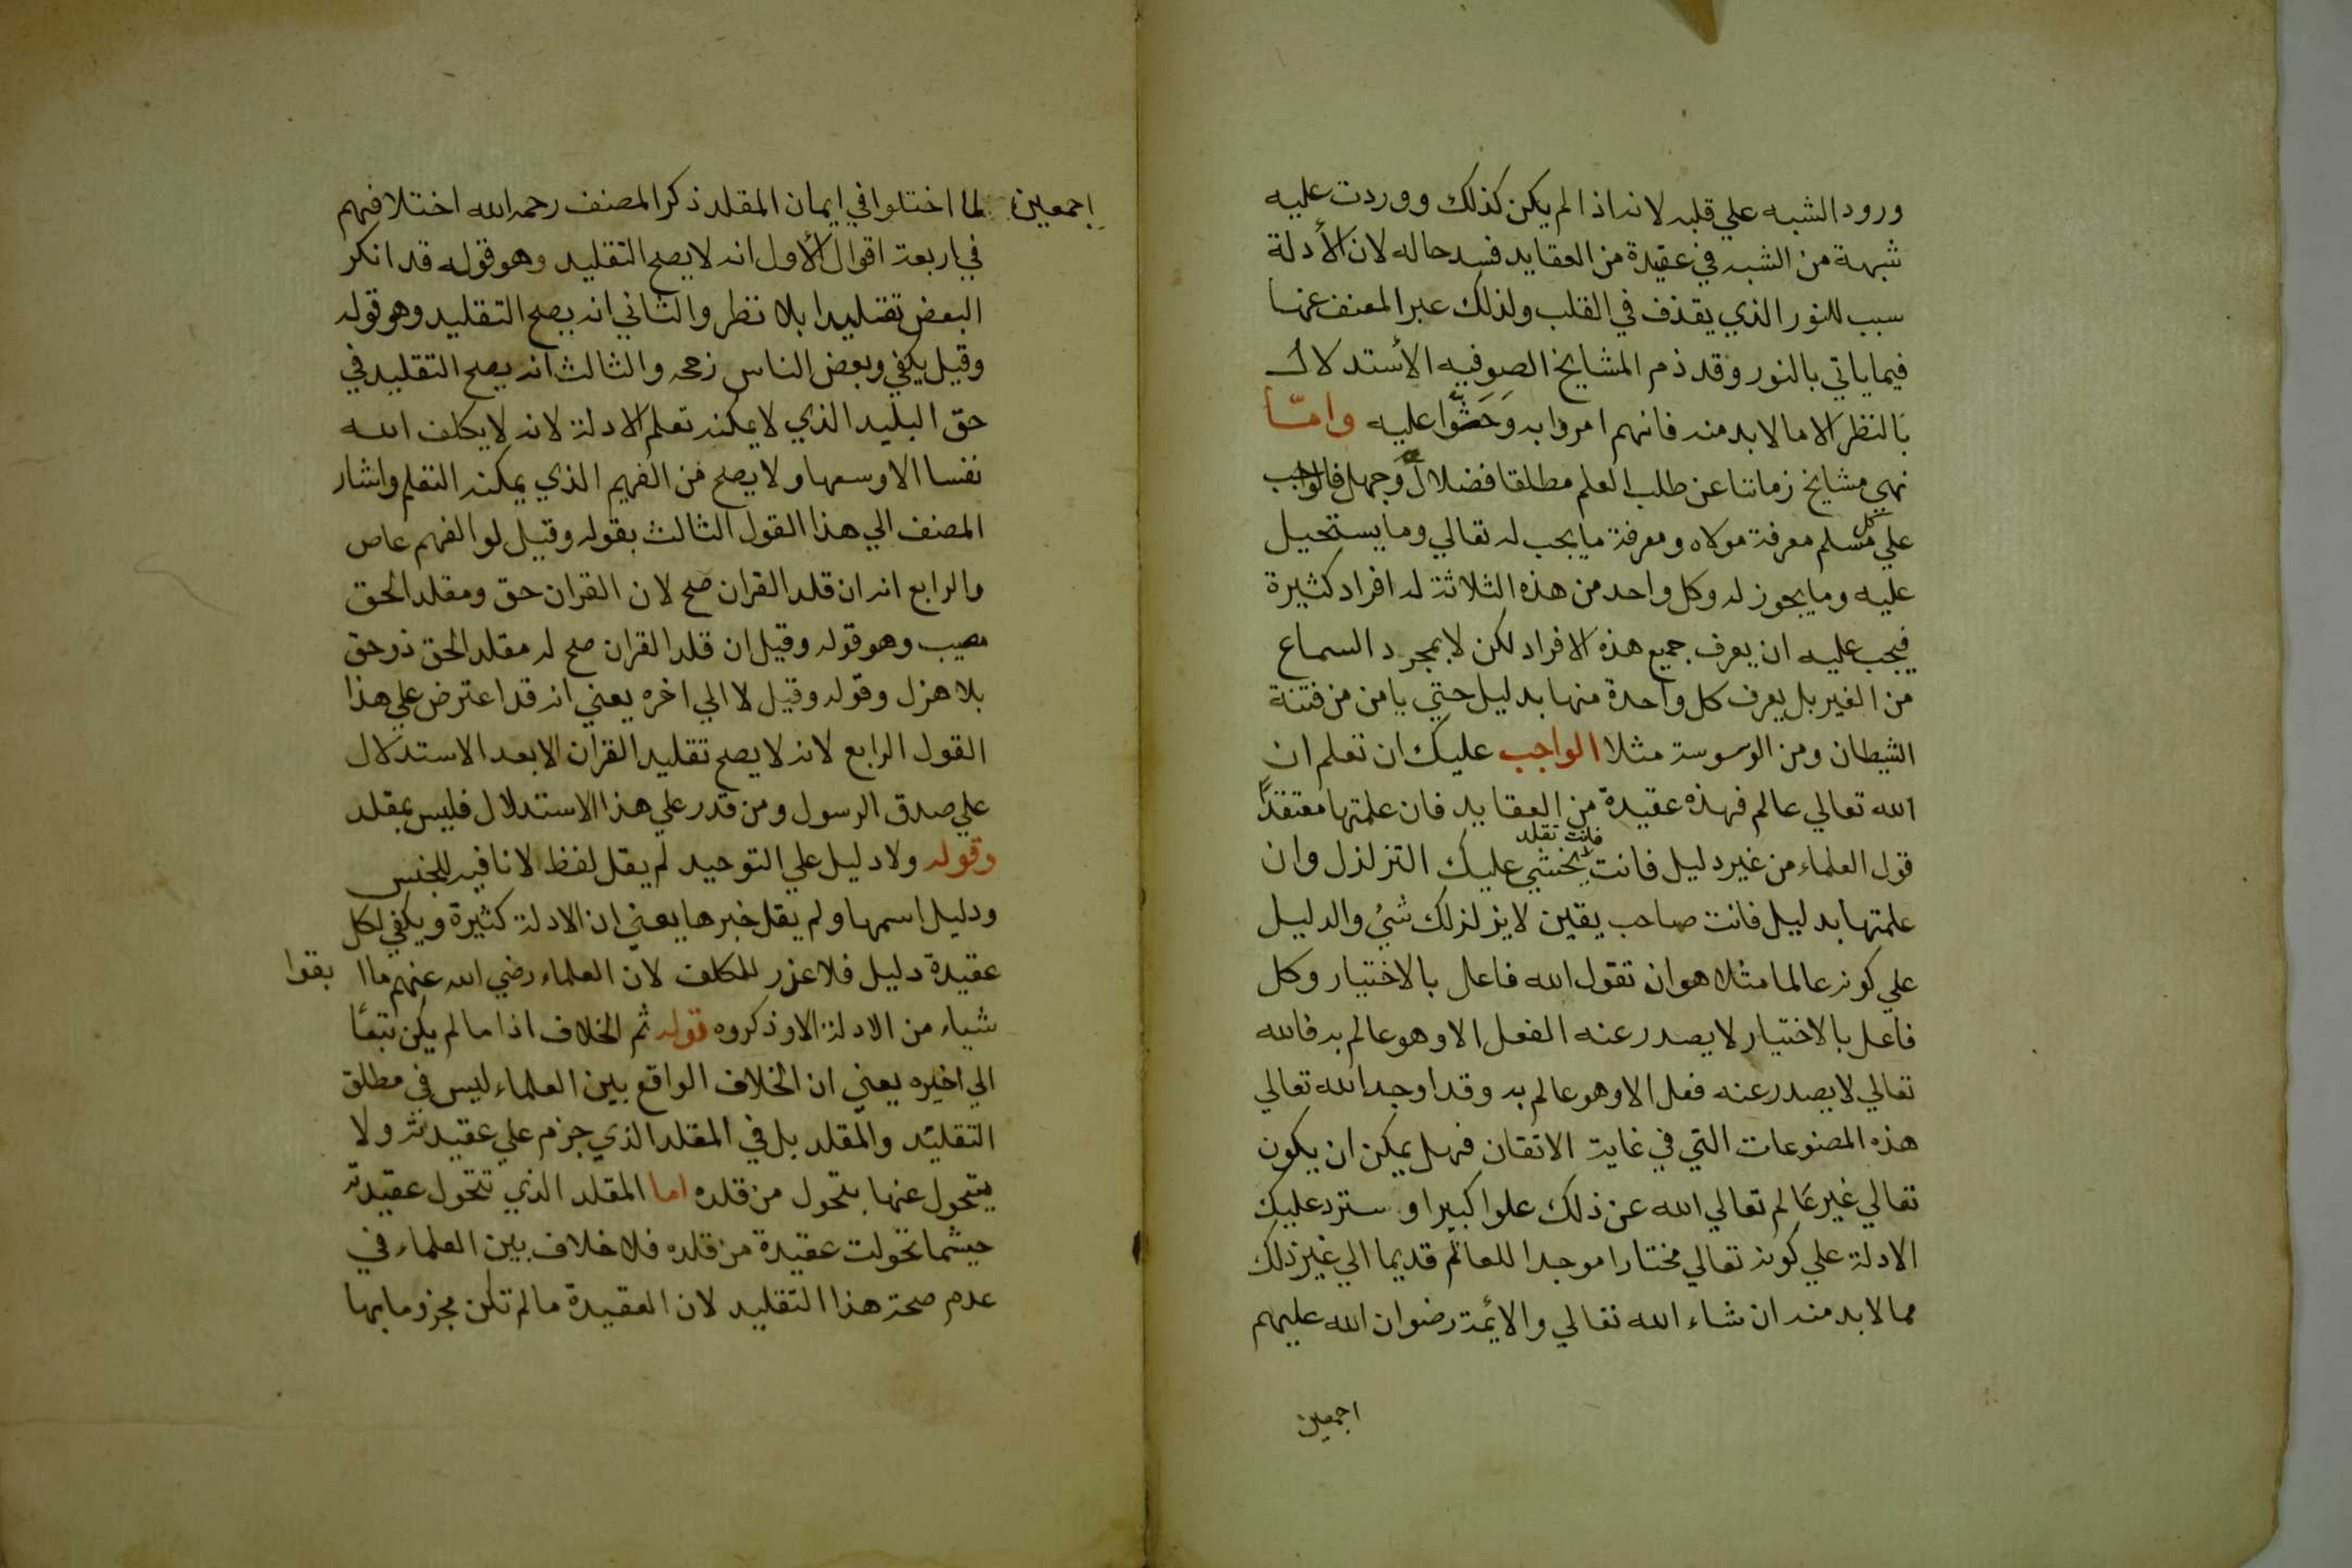 ورود الشبه علي قلبه لانه اذا لم يكن كذلك ووردت عليه
شبهة من الشبه في عقيدة من العقايد فسد حاله لان الأدلة
سبب للنور الذي يقذف في القلب ولذلك عبر المصنف عنها
فيما ياتي بالنور وقد ذم المشايخ الصوفيه الأستدلال
بالنظر الا ما لابد منه فانهم امروا به وَحَثّوا عليه وامّا
نهي مشايخ زماننا عن طلب العلم مطلقا فضلال وجهل فالواجب
علي كل مسلم معرفة مولاه ومعرفة ما يجب له تعالي وما يستحيل
عليه وما يجوز له وكل واحد من هذه الثلاثة له افراد كثيرة
فيجب عليه ان يعرف جميع هذه الافراد لكن لا بمجرد السماع
من الغير بل يعرف كل واحدة منها بدليل حتي يامن من فتنة
الشيطان ومن الوسوسة مثلا الواجب عليك ان تعلم ان
الله تعالي عالم فهذه عقيدة من العقايد فان علمتها معتقدًا
قول العلماء من غير دليل فانت فانت تقلد يخشي عليك التزلزل وان
علمتها بدليل فانت صاحب يقين لا يزلزلك شيء والدليل
علي كونه عالما مثلا هو ان تقول الله فاعل بالاختيار وكل
فاعل بالاختيار لا يصدر عنه الفعل الا وهو عالم به فالله
تعالي لا يصدر عنه فعل الا وهو عالم به وقد اوجد الله تعالي
هذه المصنوعات التي في غاية الاتقان فهل يمكن ان يكون
تعالي غير عالم تعالي الله عن ذلك علوا كبيرا وسترد عليك
الادلة علي كونه تعالي مختارا موجدا للعالم قديما الي غير ذلك
مما لابد منه ان شاء الله تعالي والائمة رضوان الله عليهم
اجمعين
اجمعين لما اختلوا في ايمان المقلد ذكر المصنف رحمه الله اختلافهم
في اربعة اقوال الأول انه لا يصح التقليد وهو قوله قد انكر
البعض تقليدا بلا نظر والثاني انه يصح التقليد وهو قوله
وقيل يكفي وبعض الناس زححه والثالث انه يصح التقليد في
حق البليد الذي لا يمكنه تعلم الادلة لانه لا يكلف الله
نفسا الا وسعها ولا يصح من الفهيم الذي يمكنه التعلم واشار
المصنف الي هذا القول الثالث بقوله وقيل لو الفهم عاص
والرابع انه ان قلد القران صح لان القران حق ومقلد الحق
مصيب وهو قوله وقيل ان قلد القران صح له مقلد الحق ذو حق
بلا هزل وقوله وقيل لا الي اخره يعني انه قد اعترض علي هذا
القول الرابع لانه لا يصح تقليد القران الا بعد الاستدلال
علي صدق الرسول ومن قدر علي هذا الاستدلال فليس بمقلد
وقوله ولا دليل علي التوحيد لم يقل لفظ لا نافيه للجنس
ودليل اسمها ولم يقل خبرها يعني ان الادلة كثيرة ويكفي لكل
عقيدة دليل فلا عزر للمكلف لان العلماء رضي الله عنهم ما ا بقوا
شياء من الادلة الا وذكروه قوله ثم الخلاف اذا ما لم يكن تبعًا
الي اخيره يعني ان الخلاف الواقع بين العلماء ليس في مطلق
التقليد والمقلد بل في المقلد الذي جزم علي عقيدته ولا
يتحول عنها بتحول من قلده اما المقلد الذي تتحول عقيدته
حيثما تحولت عقيدة من قلده فلا خلاف بين العلماء في
عدم صحة هذا التقليد لان العقيدة ما لم تكن مجزوما بها